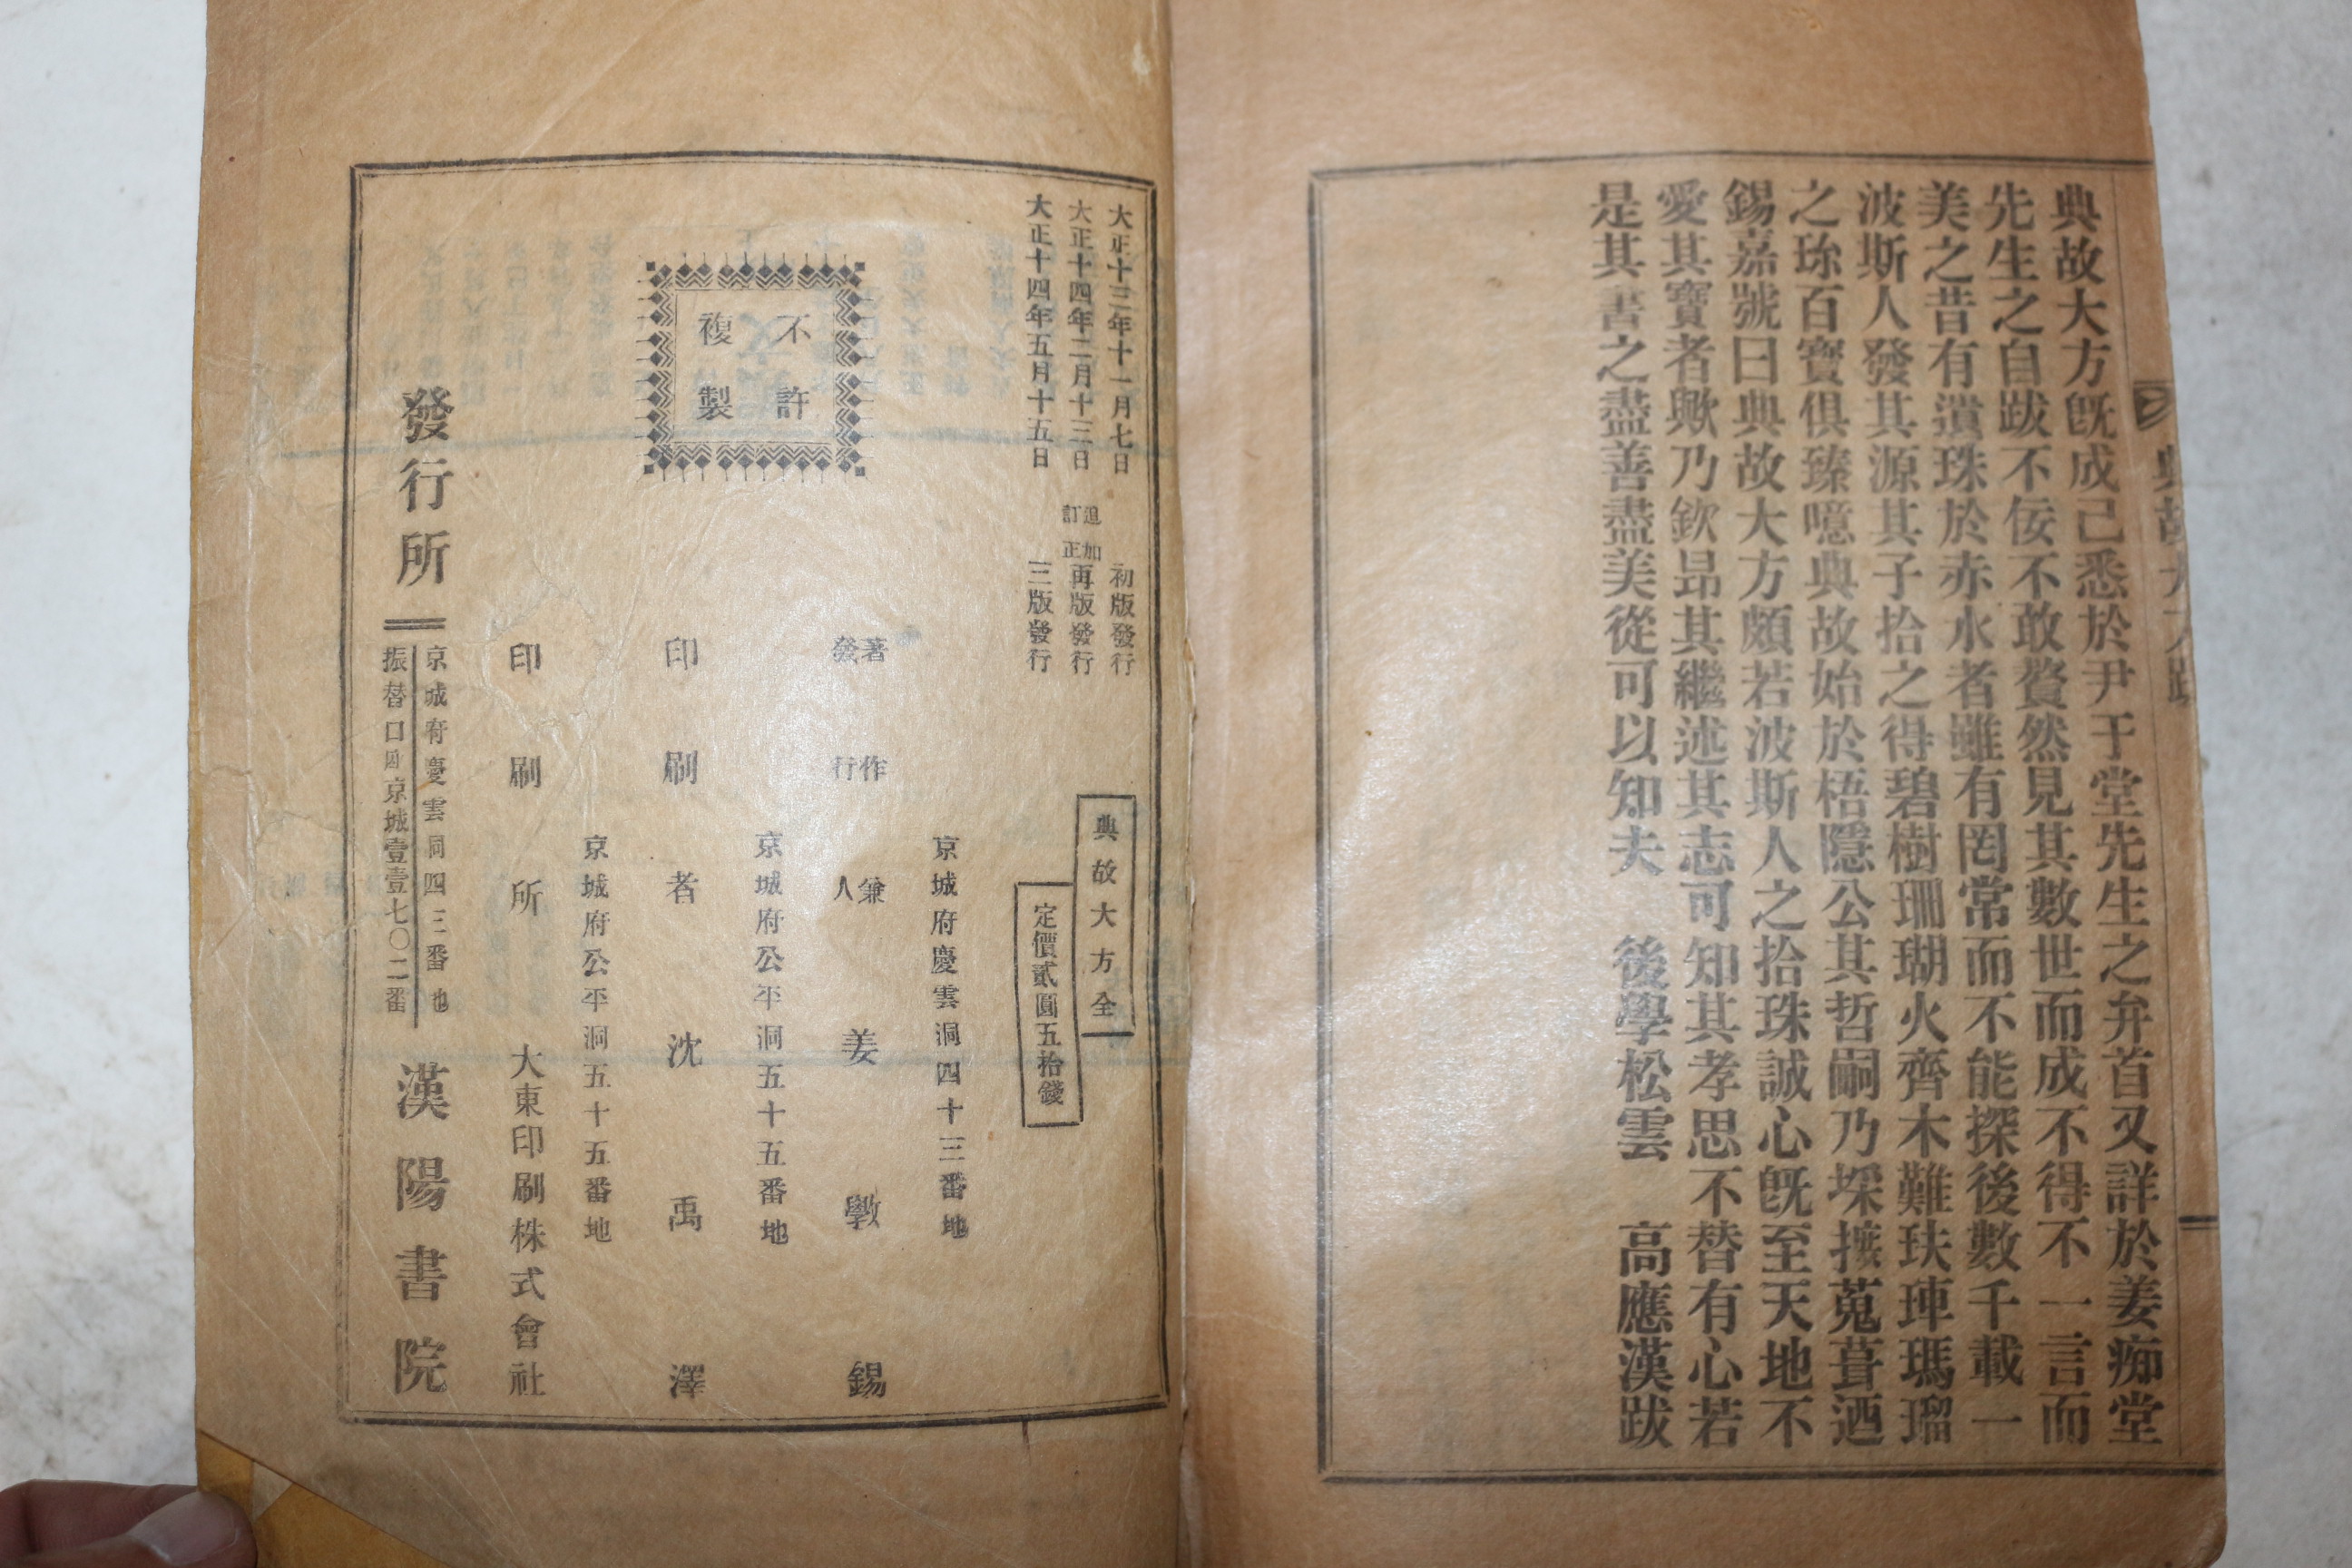 典故大方旣成已悉於尹于堂先生之弁首又詳於姜痴堂
先生之自跋不佞不敢贅然見其數世而成不得不一言而
美之昔有遺珠於赤水者雖有罔常而不能探後數千載一
波斯人發其源其子拾之得碧樹珊瑚火齊木難玞珅瑪瑠
之珎百寶俱臻噫典故始於梧隱公其哲嗣乃埰摭蒐葺迺
錫嘉號曰典故大方頗若波斯人之拾珠誠心旣至天地不
愛其寶者歟乃欽昻其繼述其志可知其孝思不替有心若
是其書之盡善盡美從可以知夫 後學松雲 高應漢跋
大正十三年十一月七日 初版發行
大正十四年二月十三日 追加訂正 再版發行
大正十四年五月十五日 三版發行
典故大方全
定價貳圓五拾錢
不許
複製
京城府慶雲洞四十三番地
著作兼
發行人 姜斅錫
京城府公平洞五十五番地
印刷者 沈禹澤
京城府公平洞五十五番地
印刷所 大東印刷株式會社
發行所
京城府慶雲洞四三番地
振替口座京城壹壹七〇二番
漢陽書院